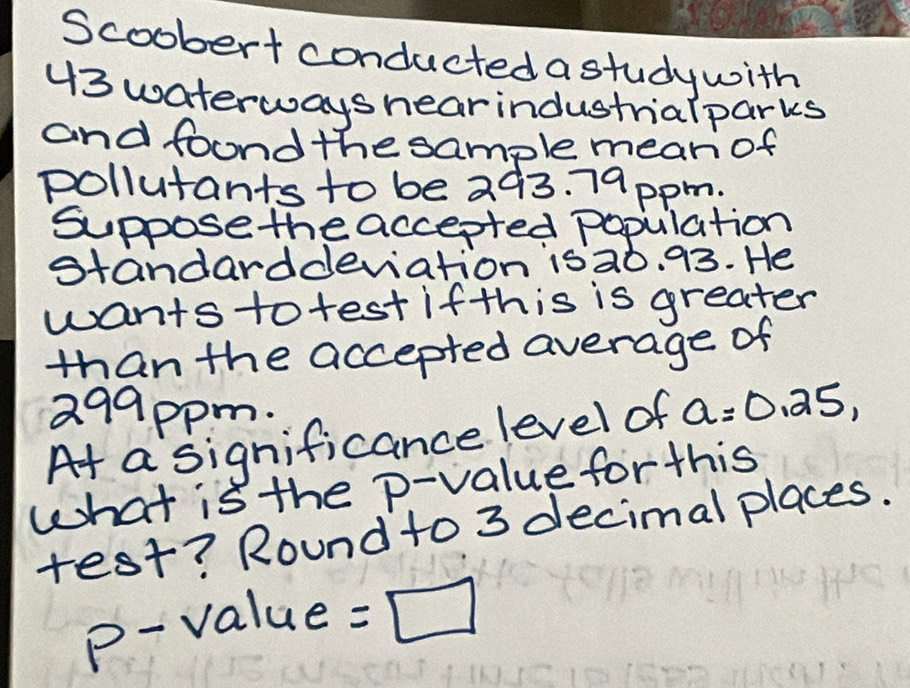 Scoobert conducted a study with
43 waterways near industrial parks
and found the sample mean of
pollutants to be 293.79 ppm.
Suppose the accepted population
standard deviation is 20.93. He
wants to test if this is greater
than the accepted average of
299 ppm.
At a significance level of a = 0.25,
what is the p-value for this
test? Round to 3 decimal places.
p-value =